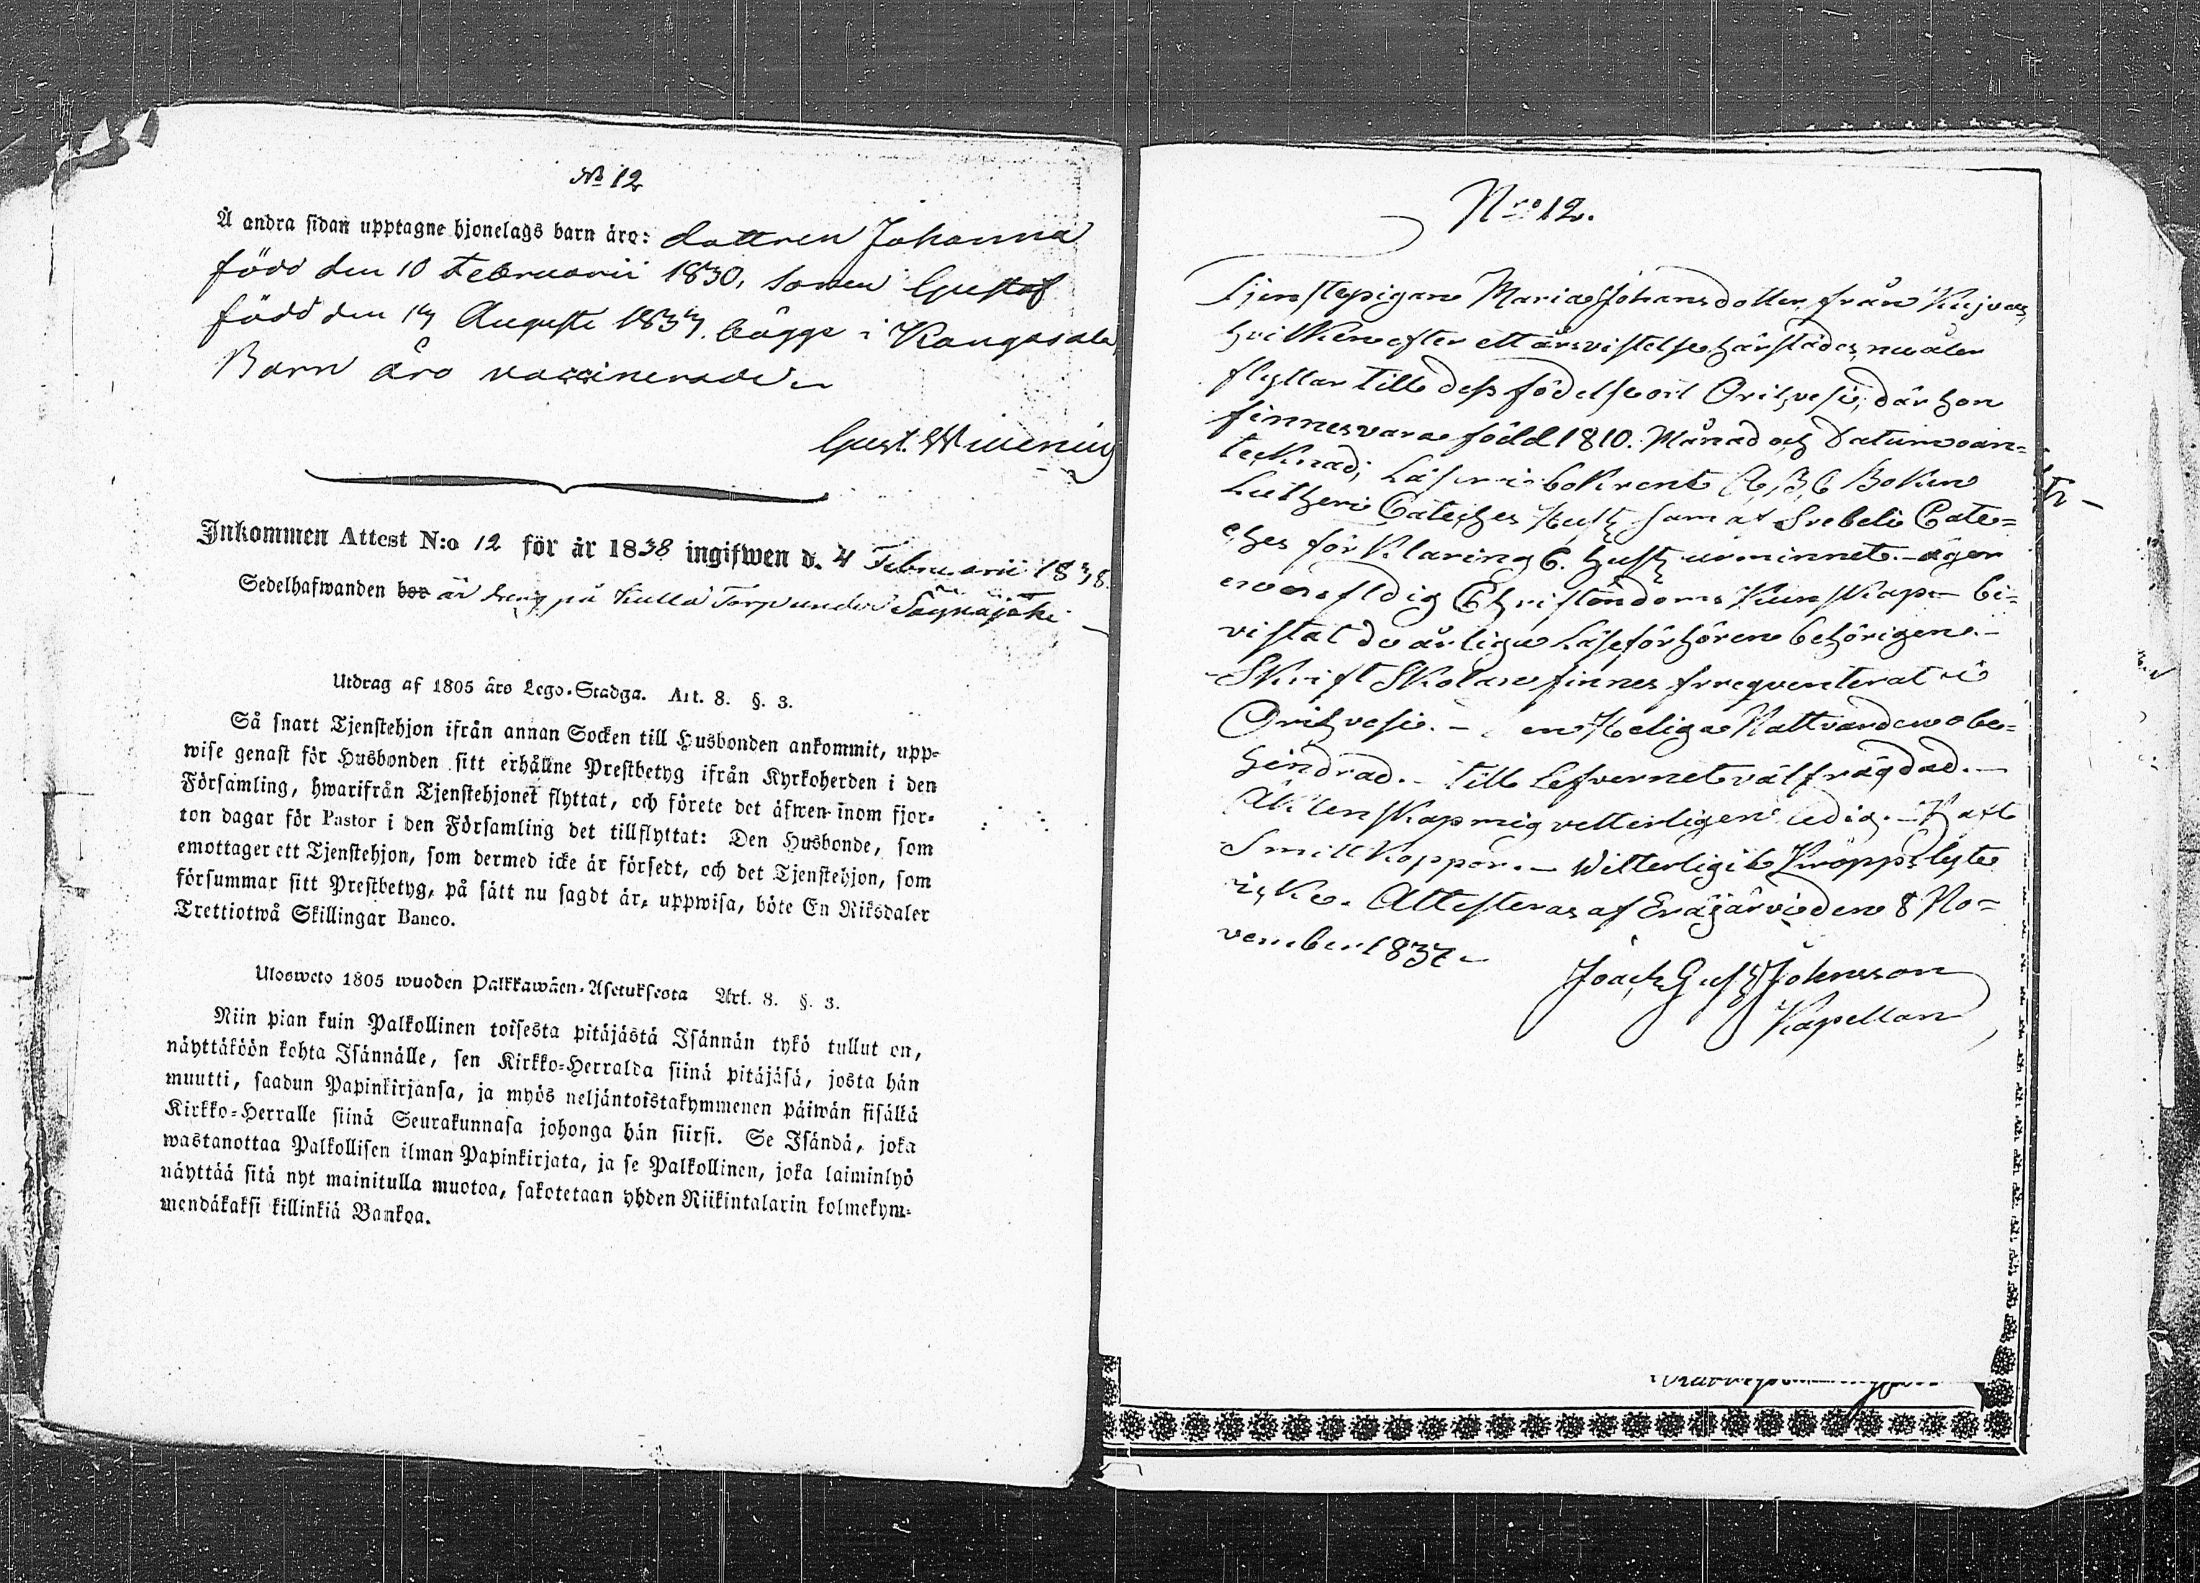 № 12
Å andra sidan upptagne hjonelags barn äro: dottren Johanna
född den 10 Februarii 1830, sonen Gustaf
född den 14 Augusti 1837. bägge i Kangasala,
Barn äro vaccinerade
Gust.
Inkommen Attest N:o 12 för år 1838 ingifwen d. 4 Februarii 1838.
Sedelhafwanden bor är dreng på Kulla Torp under
Utdrag af 1805 års Lego-Stadga. Art. 8. §. 3.
Så snart Tjenstehjon ifrån annan Socken till Husbonden ankommit, upp-
wise genast för Husbonden sitt erhållne Prestbetyg ifrån Kyrkoherden i den
Församling, hwarifrån Tjenstehjonet flyttat, och förete det äfwen inom fjor-
ton dagar för Pastor i den Församling det tillflyttat: Den Husbonde, som
emottager ett Tjenstehjon, som dermed icke är försedt, och det Tjenstehjon, som
försummar sitt Prestbetyg, på sätt nu sagdt är, uppwisa, böte En Riksdaler
Trettiotwå Skillingar Banco.
Uloosweto 1805 wuoden Palkkawäen-Asetuksesta Art. 8. §. 3.
Niin pian kuin Palkollinen toisesta pitäjästä Isännän tykö tullut on,
näyttäköön kohta Isännälle, sen Kirkko-Herralda siinä pitäjäsä, josta hän
muutti, saadun Papinkirjansa, ja myös neljäntoistakymmenen päiwän sisällä
Kirkko-Herralle siinä Seurakunnasa johonga hän siirsi. Se Isändä, joka
wastanottaa Palkollisen ilman Papinkirjata, ja se Palkollinen, joka laiminlyö
näyttää sitä nyt mainitulla muotoa, sakotetaan yhden Riikintalarin kolmekym-
mendäkaksi killinkiä Bankoa.
Nro 12.
Tjenstepigan Maria Johansdotter från
hvilken efter ett års vistelse härstädes nu åter
flyttar till dess födelseort Orihvesi, där hon
finnes vara född 1810. Månad och Datum oan-
tecknad; Läser i bok rent A, B, C Boken
Lutheri Cateches samt Svebeli Cate-
ches förklaring 6. ur minnet. - äger
enfaldig Christendoms Kunskap - bi-
vistat de årliga Läseförhören behörigen. -
Skrift Skolan finnes freqventerat i
Orihvesi. - en Heliga Nattvarden obe-
hindrad. - Till Lefvernet väl frägdad. -
Äktenskap mig vetterligen ledig. - Haft
Smittkoppor. - Witterligit Kropps lyte
icke. Attesteras af Eräjärvi den 8 No-
vember 1837.
Joach. Gust. Johnsson
Kapellan